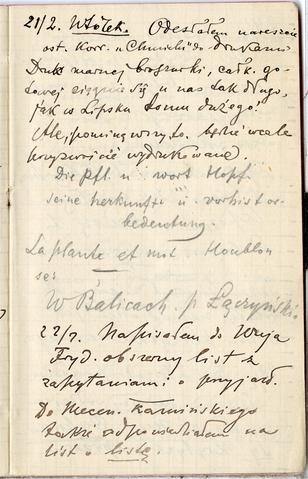 21/2. Wtorek. Odesłałem nareszcie
ost. Kor. "Chmielu" do drukarni
Druk marnej broszurki, całk. go-
towej ciągnie się u nas tak długo,
jak w Lipsku tomu dużego!
Ale, pominąwszy to, będzie wcale
przyzwoicie wydrukowane.
Die Pfl. u wort Hopf.
seine herkunft u. vorhistor-
bedeutung.
La plante et mot. Houblon
ses
W Balicach. p Łączyński
22/2. Napisałem do Wuja
Fryd. obszerny list z
zapytaniami o przyjazd.
Do Mecen. Kamińskiego
także odpowiedziałem na
list o listę.